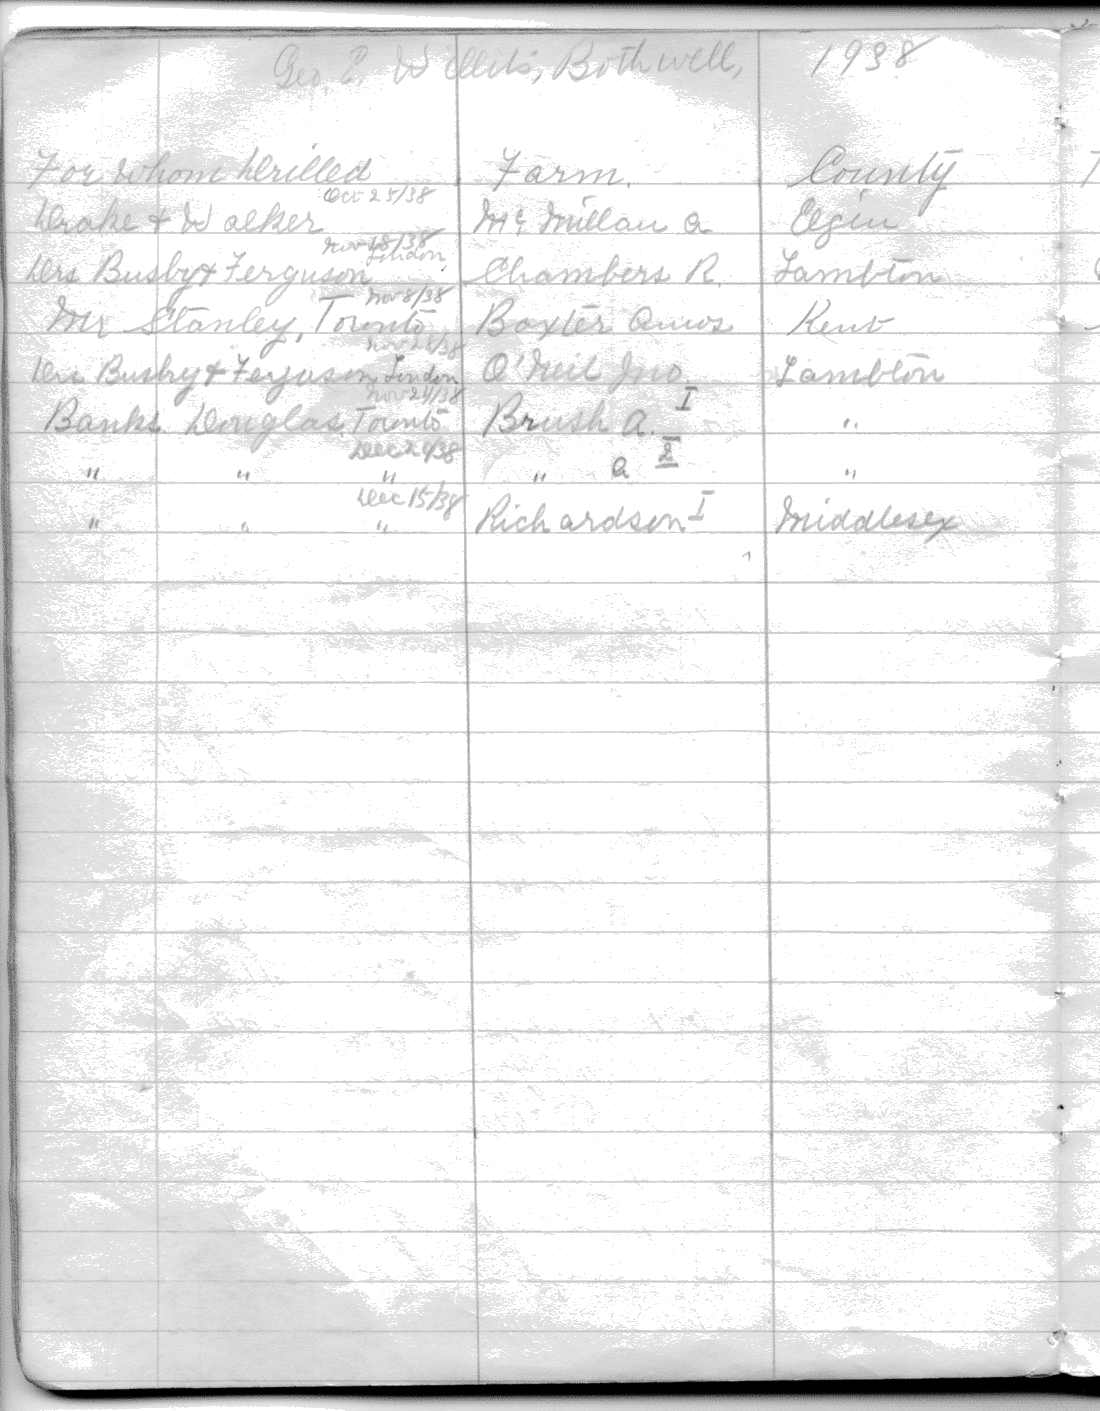 Geo. E. Willits, Bothwell, 1938
For Whom Drilled Farm. County
Oct 25/38
Drake & Walker McMillan A Elgin
Nov 18/38
London
Drs Busby & Ferguson Chambers R. Lambton
Nov 8/38
Mr Stanley, Toronto Baxter Amos Kent
Nov /38
Drs Busby & Ferguson London O'Neil Jno Lambton
Nov 24/38
Banks Douglas, Toronto Brush A. I "
Dec 24/38
" " " " A 2 "
Dec 15/38
" " " Richardson I Middlesex